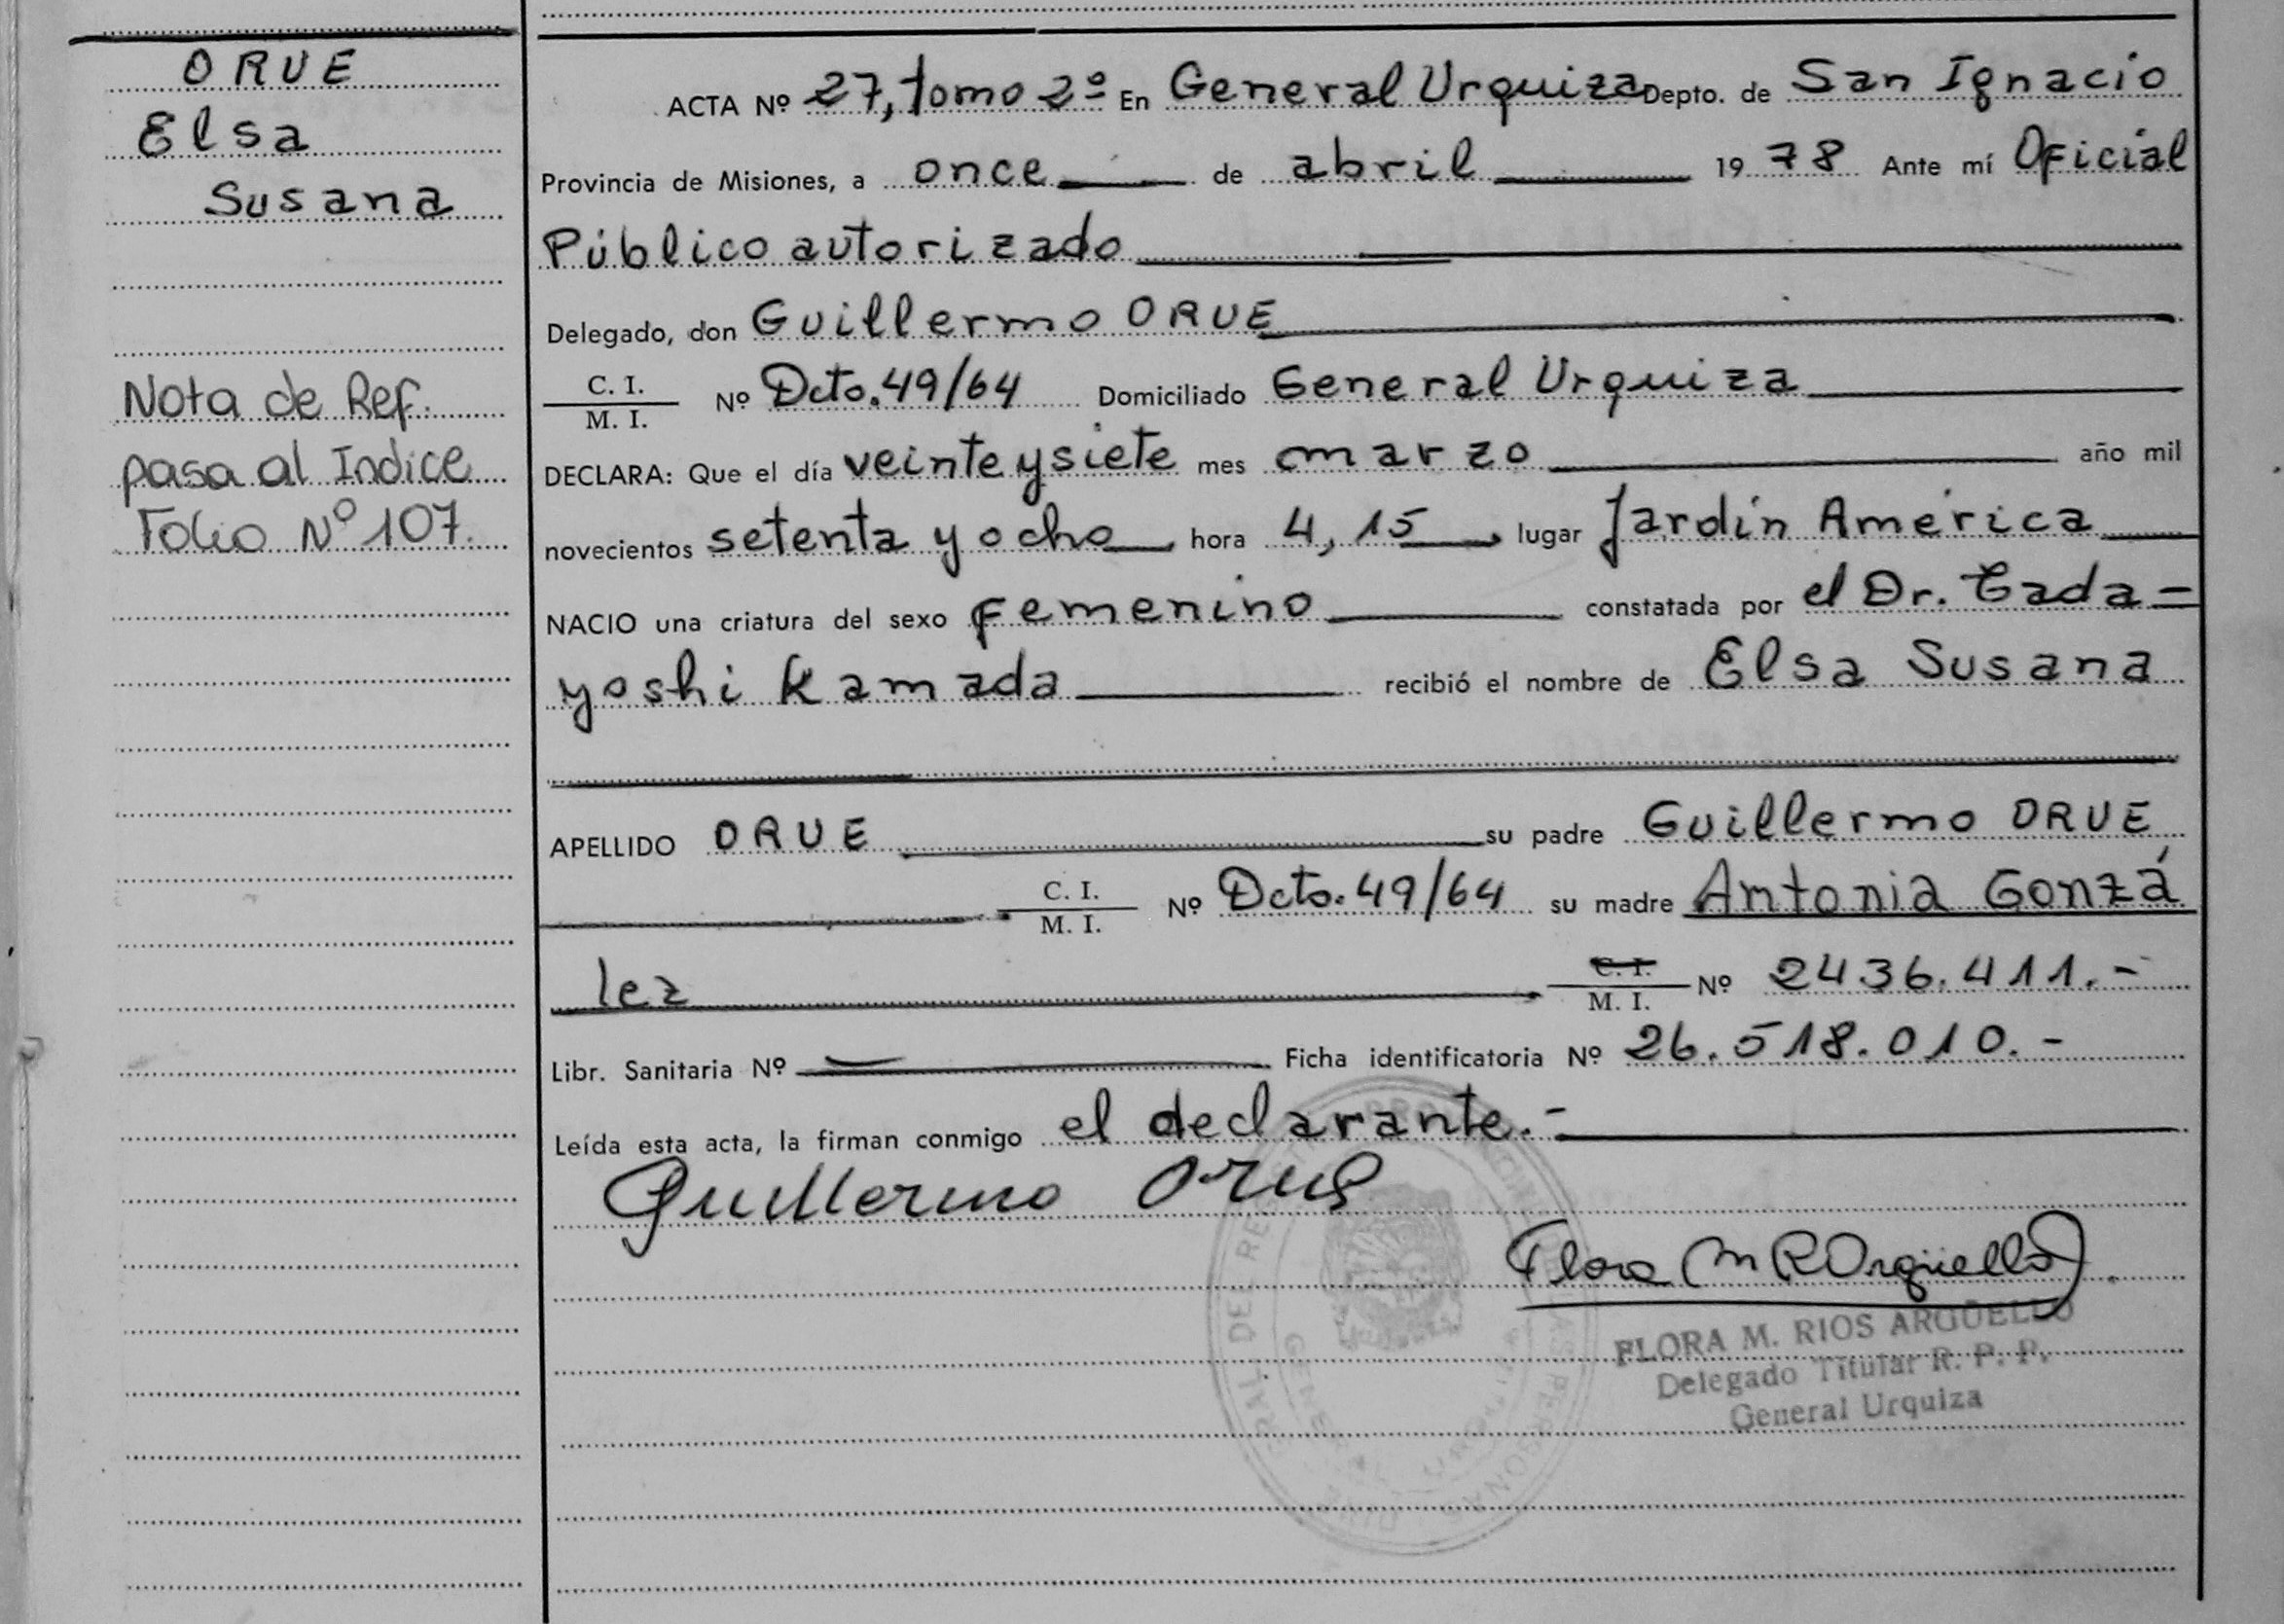 ORUE
Elsa
Susana
Nota de Ref.
pasa al Indice
Folio Nº 107.
ACTA Nº 27, tomo 2º En General Urquiza Depto. de San Ignacio
Provincia de Misiones, a once de abril 1978 Ante mí Oficial
Público autorizado
Delegado, don Guillermo ORUE
C. I.
M. I. Nº Dcto. 49/64 Domiciliado General Urquiza
DECLARA: Que el día veinteysiete mes marzo año mil
novecientos setenta y ocho hora 4,15 lugar Jardín América
NACIO una criatura del sexo Femenino constatada por el Dr. Tada-
yoshi Kamada recibió el nombre de Elsa Susana
APELLIDO ORUE su padre Guillermo ORUE
C. I.
M. I. Nº Dcto. 49/64 su madre Antonia Gonzá
lez C. I.
M. I. Nº 2436.411.-
Libr. Sanitaria Nº Ficha identificatoria Nº 26.518.010.-
Leída esta acta, la firman conmigo el declarante.-
Guillermo Orue
Flora M R Argüello
FLORA M. RIOS ARGÜELLO
Delegado Titular R. P. P.
General Urquiza
GENERAL URQUIZA